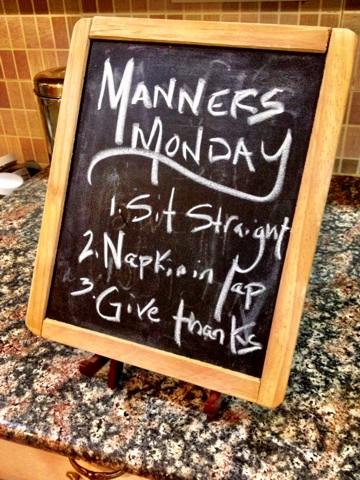 MANNERS
MONDAY
1. Sit Straight
2. Napkin in lap
3. Give thanks